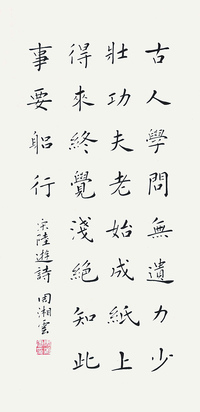 古人學問無遺力少
壯功夫老始成紙上
得來終覺淺絕知此
事要躬行
宋陸遊詩 周湘雲